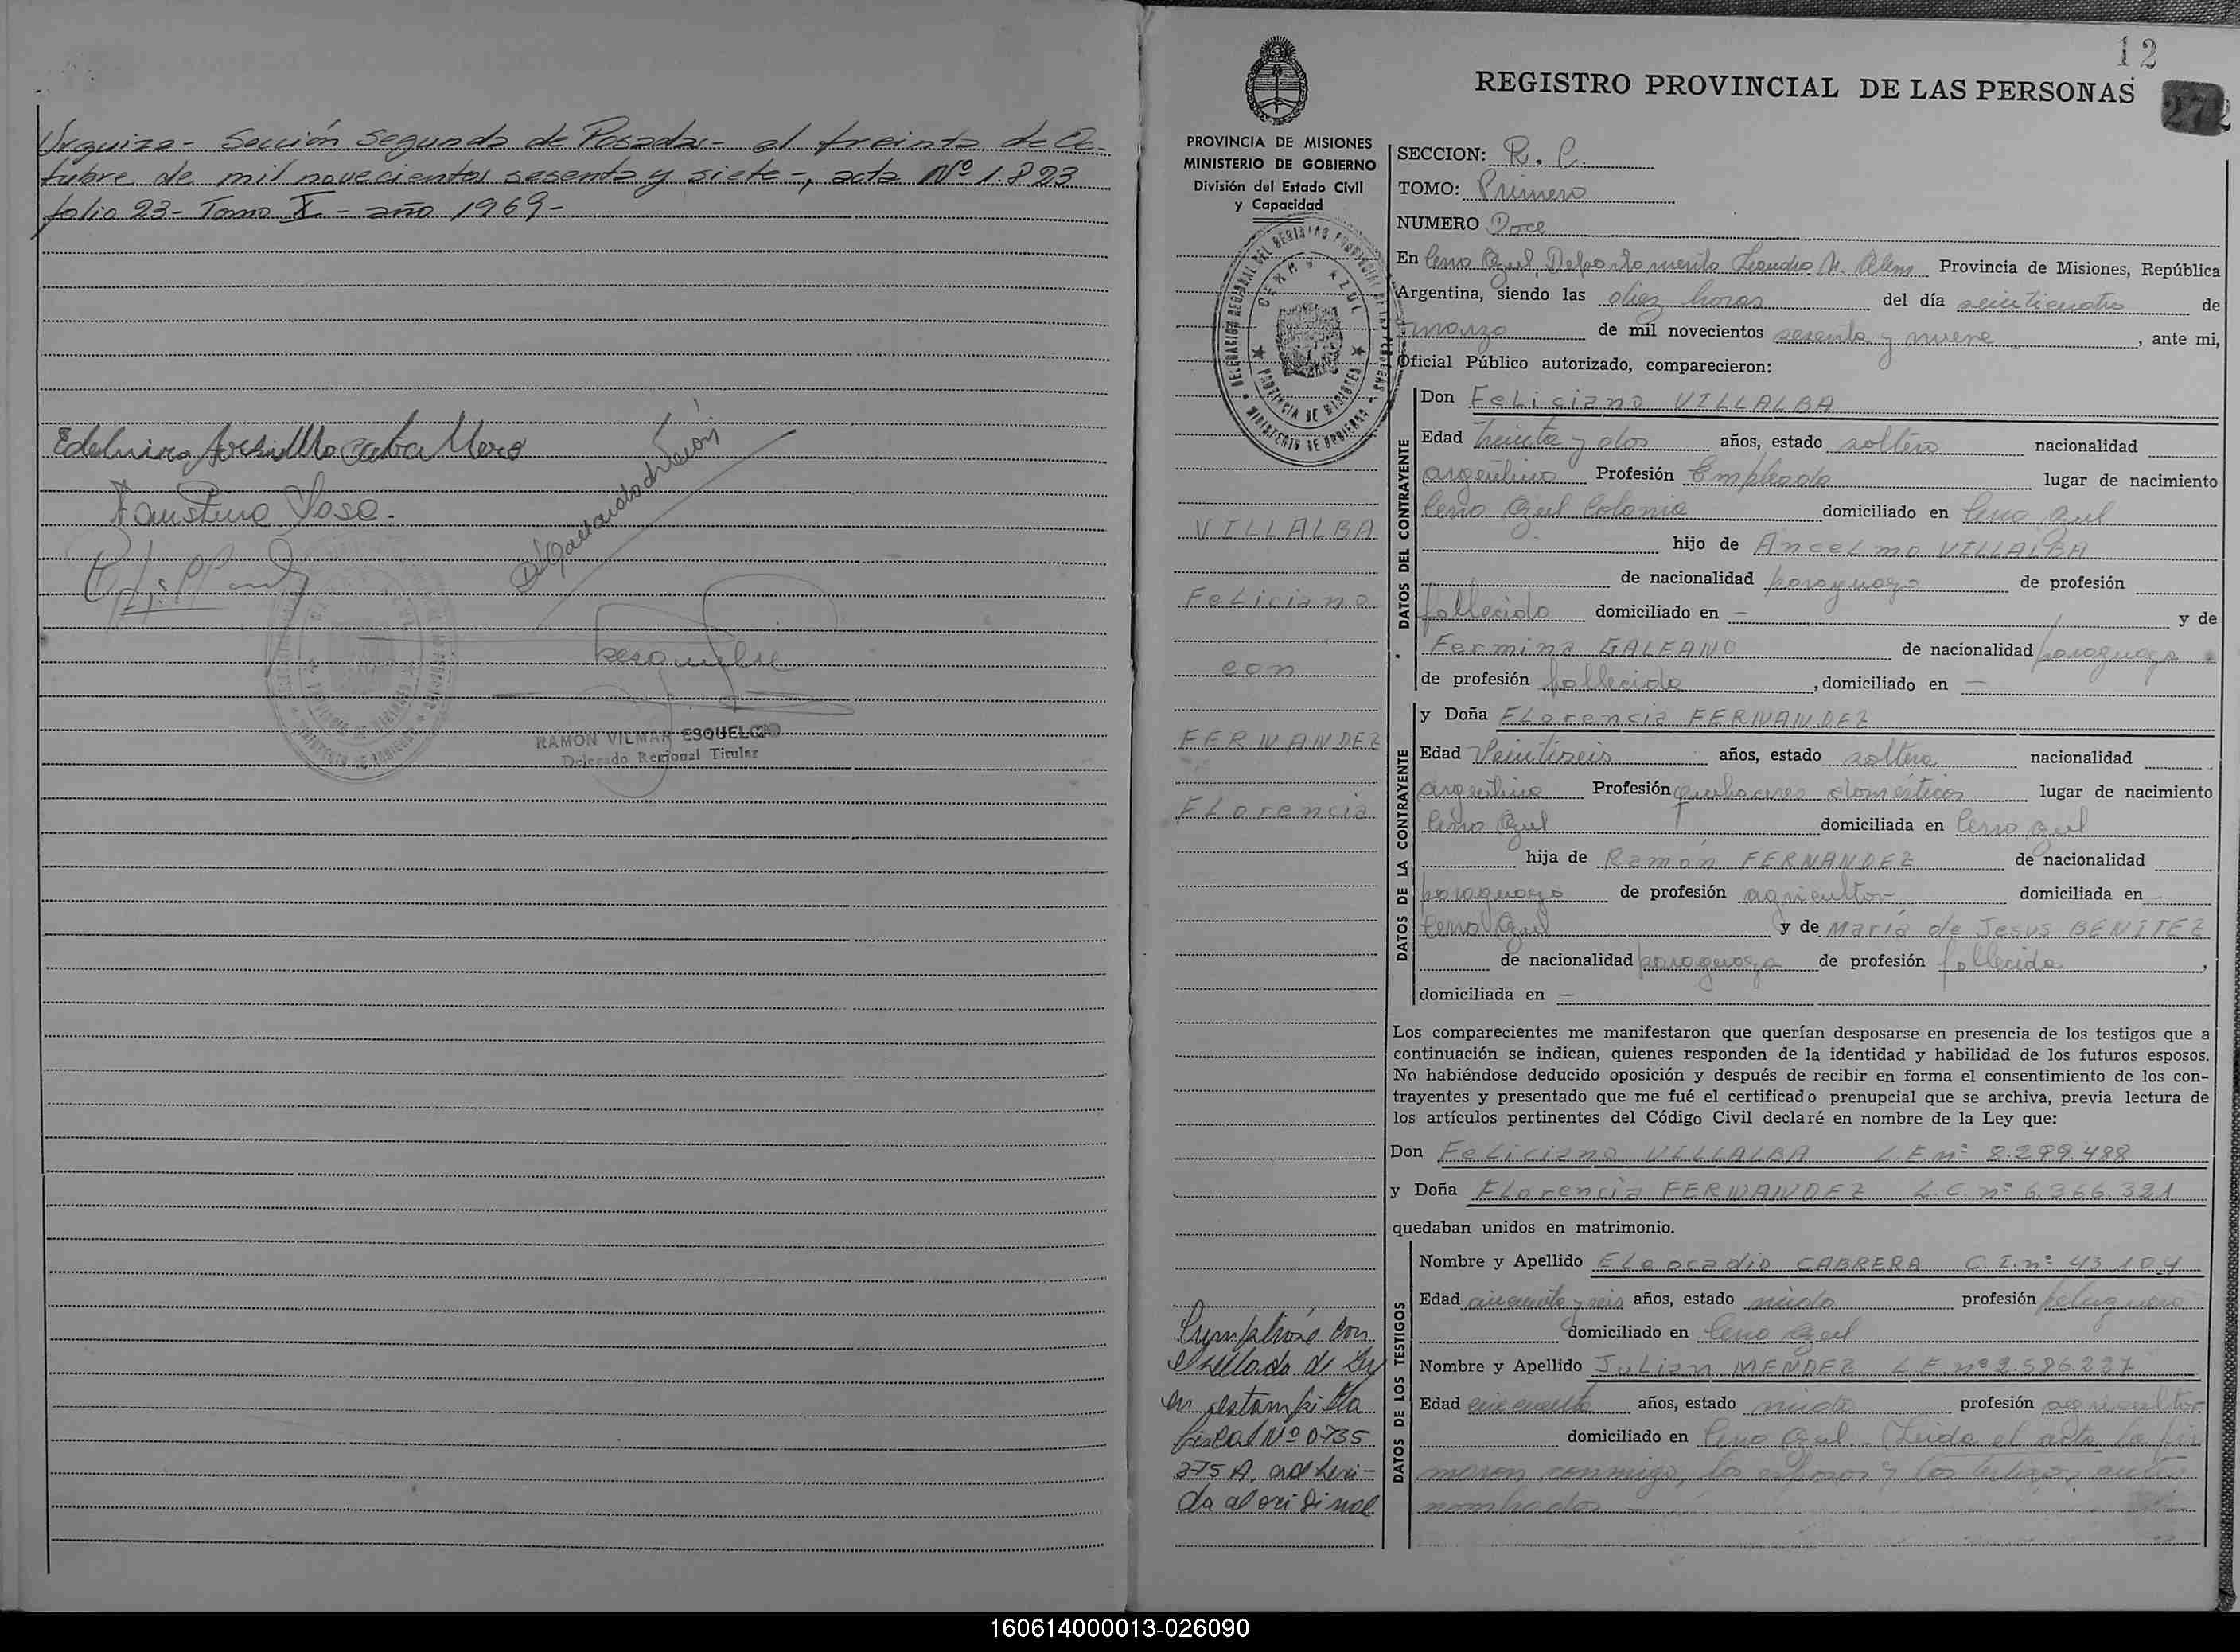 Urquiza - Sección segunda de Posadas - al treinta de Oc-
tubre de mil novecientos sesenta y siete -, acta Nº 1.823
folio 23 - Tomo X - año 1969 -
Faustino Sosa.
RAMON VILMAR ESQUELCO
Delegado Regional Titular
12
REGISTRO PROVINCIAL DE LAS PERSONAS
272
PROVINCIA DE MISIONES
MINISTERIO DE GOBIERNO
División del Estado Civil
y Capacidad
CERRO AZUL
PROVINCIA DE MISIONES
VILLALBA
Feliciano
con
FERNANDEZ
Florencia
Cumplióse con
el sellado de Ley
en estampilla
fiscal Nº 0735
375 A, adheri-
da al original
SECCION: R. C.
TOMO: Primero
NUMERO Doce
En Cerro Azul, Depto Leandro N. Alem Provincia de Misiones, República
Argentina, siendo las diez horas del día veinticuatro de
marzo de mil novecientos sesenta y nueve, ante mi,
Oficial Público autorizado, comparecieron:
DATOS DEL CONTRAYENTE
Don Feliciano VILLALBA
Edad Treinta y dos años, estado soltero nacionalidad
argentino Profesión Empleado lugar de nacimiento
Cerro Azul Colonia domiciliado en Cerro Azul
hijo de Ancelmo VILLALBA
de nacionalidad paraguayo de profesión
fallecido domiciliado en - y de
Fermina GALEANO de nacionalidad paraguaya
de profesión fallecida, domiciliado en -
DATOS DE LA CONTRAYENTE
y Doña Florencia FERNANDEZ
Edad Veintiseis años, estado soltera nacionalidad
argentina Profesión quehaceres domésticos lugar de nacimiento
Cerro Azul domiciliada en Cerro Azul
hija de Ramón FERNANDEZ de nacionalidad
paraguayo de profesión agricultor domiciliada en
Cerro Azul y de María de Jesus BENITEZ
de nacionalidad paraguaya de profesión fallecida,
domiciliada en -
Los comparecientes me manifestaron que querían desposarse en presencia de los testigos que a
continuación se indican, quienes responden de la identidad y habilidad de los futuros esposos.
No habiéndose deducido oposición y después de recibir en forma el consentimiento de los con-
trayentes y presentado que me fué el certificado prenupcial que se archiva, previa lectura de
los artículos pertinentes del Código Civil declaré en nombre de la Ley que:
Don Feliciano VILLALBA L.E. nº 8.299.488
y Doña Florencia FERNANDEZ L.C nº 6.366.321
quedaban unidos en matrimonio.
DATOS DE LOS TESTIGOS
Nombre y Apellido Eleocadio CABRERA C.I. nº 43.104
Edad cincuenta y seis años, estado viudo profesión peluquero
domiciliado en Cerro Azul
Nombre y Apellido Julian MENDEZ L.E. nº 2.586.227
Edad cincuenta años, estado viudo profesión agricultor
domiciliado en Cerro Azul. Leida el acta la fir
maron conmigo, los esposos y los testigos ante
nombrados
160614000013-026090